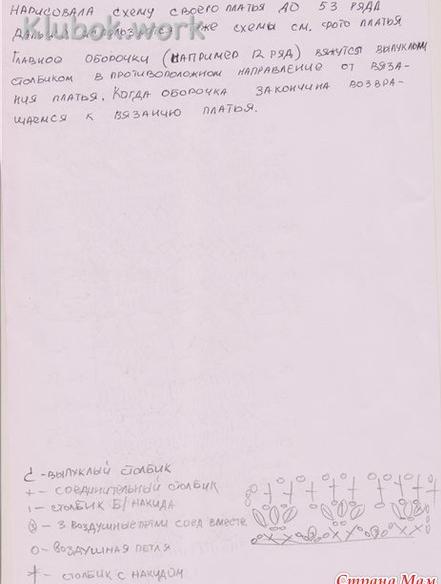 НАРИСОВАЛА СХЕМУ СВОЕГО ПЛАТЬЯ ДО 53 РЯДА
Klubok.work
ЖЕ СХЕМЫ СМ. ФОТО ПЛАТЬЯ
ГЛАВНОЕ ОБОРОЧКИ (НАПРИМЕР 12 РЯД) ВЯЖУТСЯ ВЫПУКЛЫМ
СТОЛБИКОМ В ПРОТИВОПОЛОЖНОМ НАПРАВЛЕНИЕ ОТ ВЯЗА-
НИЯ ПЛАТЬЯ. КОГДА ОБОРОЧКА ЗАКОНЧИНА ВОЗВРА-
ЩАЕМСЯ К ВЯЗАНИЮ ПЛАТЬЯ.
- ВЫПУКЛЫЙ СТОЛБИК
+ - СОЕДИНИТЕЛЬНЫЙ СТОЛБИК
ı - СТОЛБИК Б/НАКИДА
- 3 ВОЗДУШНЫЕ ПЕТЛИ СОЕД ВМЕСТЕ
о - ВОЗДУШНАЯ ПЕТЛЯ
- СТОЛБИК С НАКИДОМ
Страна Мам